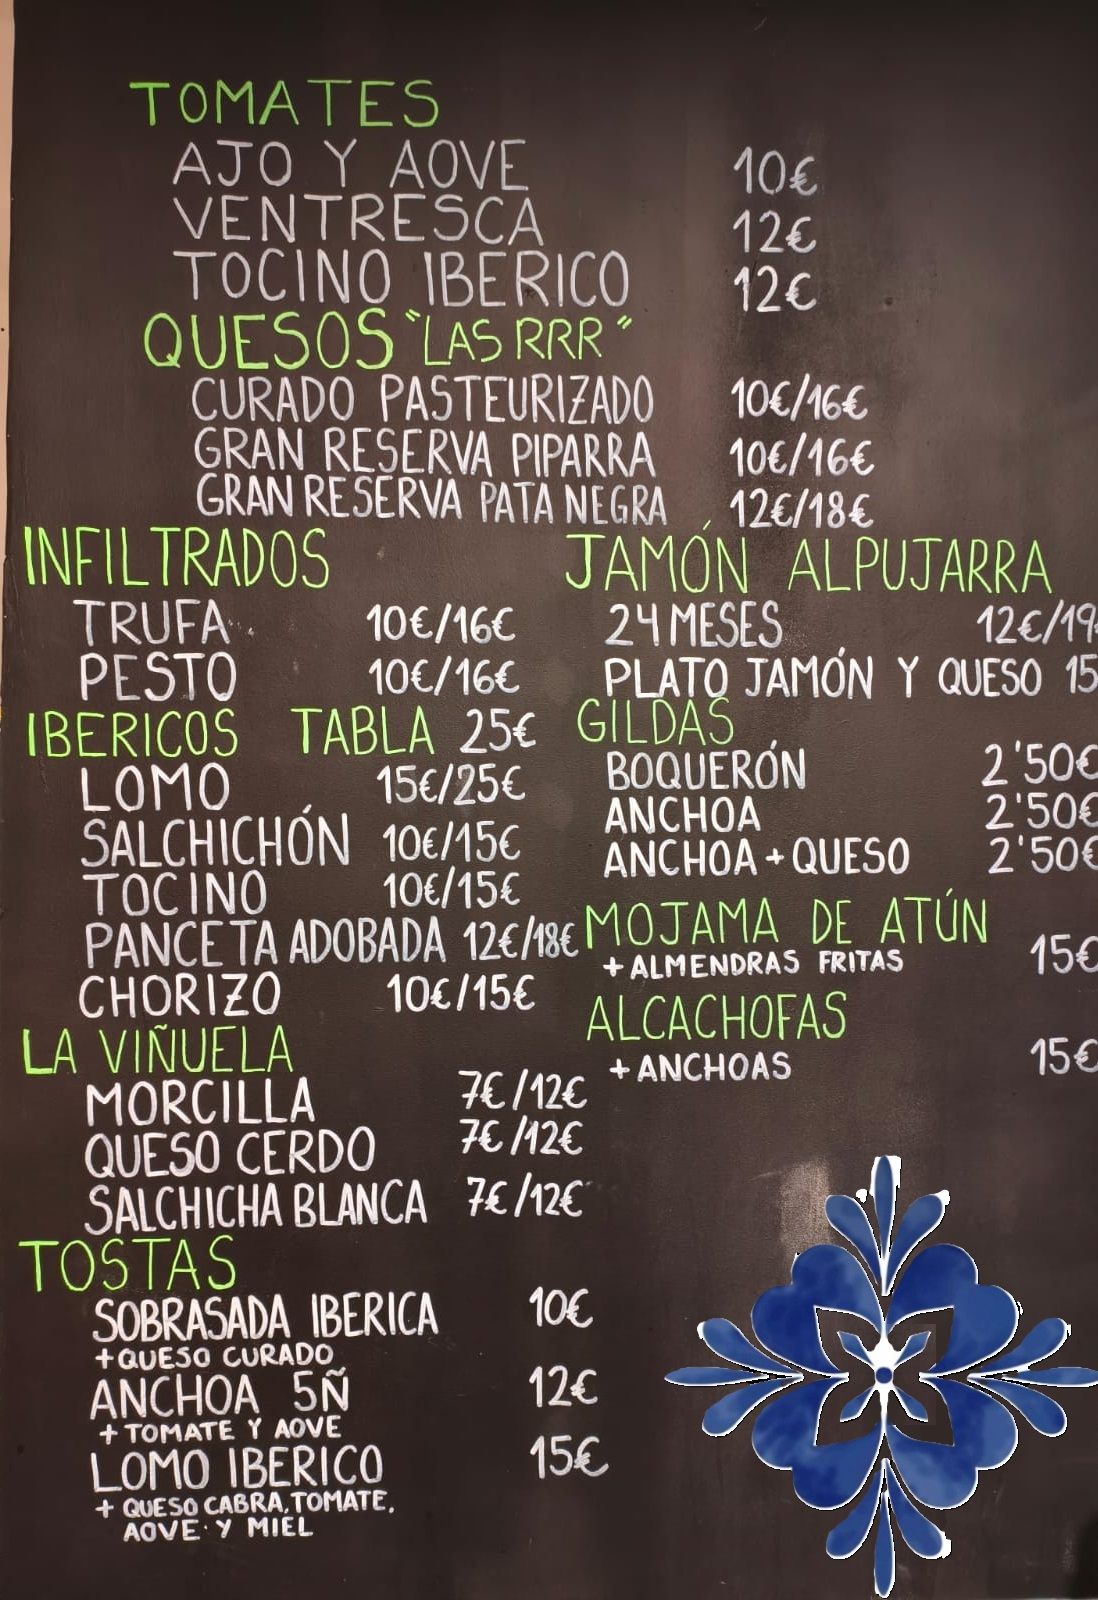 TOMATES
AJO Y AOVE 10€
VENTRESCA 12€
TOCINO IBERICO 12€
QUESOS "LAS RRR"
CURADO PASTEURIZADO 10€/16€
GRAN RESERVA PIPARRA 10€/16€
GRAN RESERVA PATA NEGRA 12€/18€
INFILTRADOS
TRUFA 10€/16€
PESTO 10€/16€
IBERICOS TABLA 25€
LOMO 15€/25€
SALCHICHÓN 10€/15€
TOCINO 10€/15€
PANCETA ADOBADA 12€/18€
CHORIZO 10€/15€
LA VIÑUELA
MORCILLA 7€/12€
QUESO CERDO 7€/12€
SALCHICHA BLANCA 7€/12€
TOSTAS
SOBRASADA IBERICA 10€
+QUESO CURADO
ANCHOA 5Ñ 12€
+ TOMATE Y AOVE
LOMO IBERICO 15€
+ QUESO CABRA, TOMATE,
AOVE Y MIEL
JAMÓN ALPUJARRA
24 MESES 12€/19€
PLATO JAMÓN Y QUESO 15
GILDAS
BOQUERÓN 2'50€
ANCHOA 2'50€
ANCHOA + QUESO 2'50€
MOJAMA DE ATÚN
+ ALMENDRAS FRITAS 15€
ALCACHOFAS
+ ANCHOAS 15€